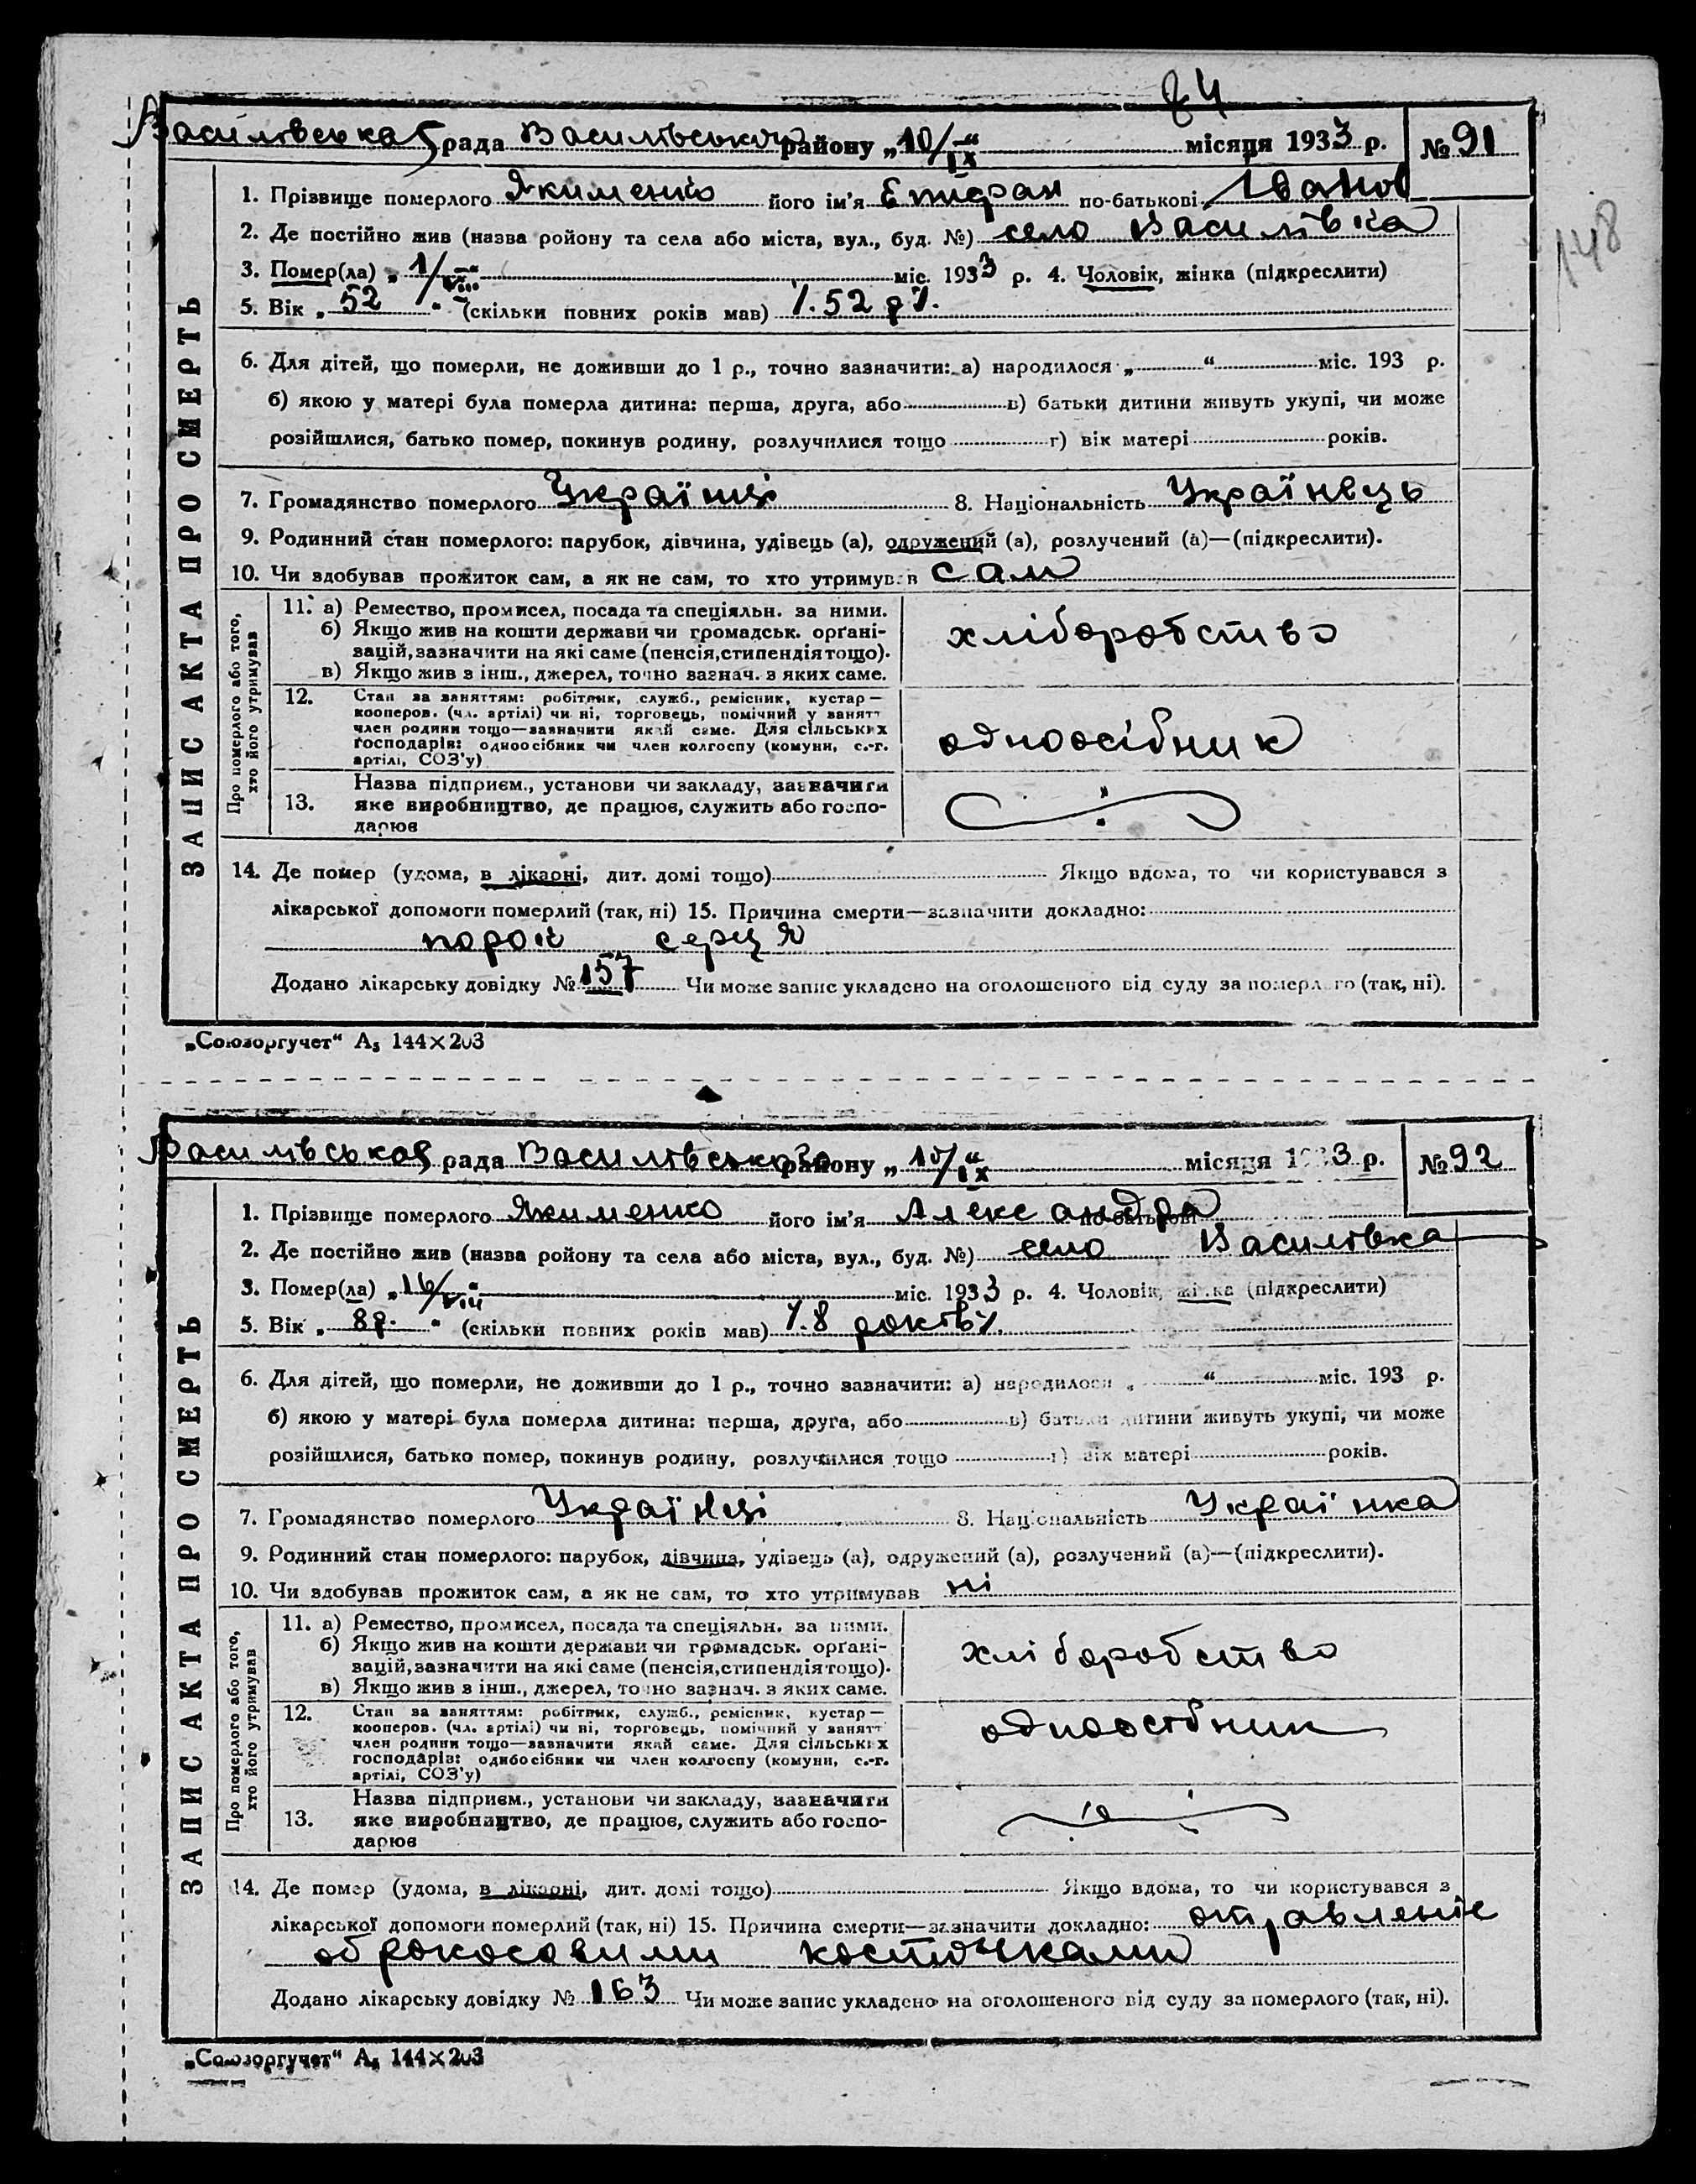 84
148
Василівська рада Василівського району „10/IX“ місяця 1933 р. № 91
ЗАПИС АКТА ПРО СМЕРТЬ
1. Прізвище померлого Якименко його ім'я по-батькові Іванов
2. Де постійно жив (назва ройону та села або міста, вул., буд. №) село Василівка
3. Помер(ла) „1/VIII“ міс. 1933 р. 4. Чоловік, жінка (підкреслити)
5. Вік „52“ (скільки повних років мав) /.52 р/.
6. Для дітей, що померли, не доживши до 1 р., точно зазначити: а) народилося „ “ міс. 193 р.
б) якою у матері була померла дитина: перша, друга, або в) батьки дитини живуть укупі, чи може
розійшлися, батько помер, покинув родину, розлучилися тощо г) вік матері років.
7. Громадянство померлого Українці 8. Національність Українець
9. Родинний стан померлого: парубок, дівчина, удівець (а), одружений (а), розлучений (а)—(підкреслити).
10. Чи здобував прожиток сам, а як не сам, то хто утримував сам
Про померлого або того,
хто його утримував
11. а) Ремество, промисел, посада та спеціяльн. за ними.
б) Якщо жив на кошти держави чи громадськ. орґані-
зацій, зазначити на які саме (пенсія, стипендія тощо).
в) Якщо жив з інш., джерел, точно зазнач. з яких саме.
хліборобство
12. Стан за заняттям: робітник, служб., ремісник, кустар—
кооперов. (чл. артілі) чи ні, торговець, помічний у занятт
член родини тощо—зазначити який саме. Для сільських
господарів: одноосібник чи член колгоспу (комуни, с.-г.
артілі, СОЗ'у)
одноосібник
13. Назва підприєм., установи чи закладу, зазначити
яке виробництво, де працює, служить або госпо-
дарює
14. Де помер (удома, в лікарні, дит. домі тощо) Якщо вдома, то чи користувався з
лікарської допомоги померлий (так, ні) 15. Причина смерти—зазначити докладно:
порок серця
Додано лікарську довідку № 157 Чи може запис укладено на оголошеного від суду за померлого (так, ні).
„Союзоргучет“ А5 144×203
Василівська рада Василівського району „10/IX“ місяця 1933 р. № 92
ЗАПИС АКТА ПРО СМЕРТЬ
1. Прізвище померлого Якименко його ім'я Александра по-батькові
2. Де постійно жив (назва ройону та села або міста, вул., буд. №) село Василівка
3. Помер(ла) „16/VIII“ міс. 1933 р. 4. Чоловік, жінка (підкреслити)
5. Вік „8р.“ (скільки повних років мав) /.8 років/.
6. Для дітей, що померли, не доживши до 1 р., точно зазначити: а) народилося „ “ міс. 193 р.
б) якою у матері була померла дитина: перша, друга, або в) батьки дитини живуть укупі, чи може
розійшлися, батько помер, покинув родину, розлучилися тощо г) вік матері років.
7. Громадянство померлого Українці 8. Національність Українка
9. Родинний стан померлого: парубок, дівчина, удівець (а), одружений (а), розлучений (а)—(підкреслити).
10. Чи здобував прожиток сам, а як не сам, то хто утримував ні
Про померлого або того,
хто його утримував
11. а) Ремество, промисел, посада та спеціяльн. за ними.
б) Якщо жив на кошти держави чи громадськ. орґані-
зацій, зазначити на які саме (пенсія, стипендія тощо).
в) Якщо жив з інш., джерел, точно зазнач. з яких саме.
хліборобство
12. Стан за заняттям: робітник, служб., ремісник, кустар—
кооперов. (чл. артілі) чи ні, торговець, помічний у занятт
член родини тощо—зазначити який саме. Для сільських
господарів: одноосібник чи член колгоспу (комуни, с.-г.
артілі, СОЗ'у)
одноосібник
13. Назва підприєм., установи чи закладу, зазначити
яке виробництво, де працює, служить або госпо-
дарює
14. Де помер (удома, в лікарні, дит. домі тощо) Якщо вдома, то чи користувався з
лікарської допомоги померлий (так, ні) 15. Причина смерти—зазначити докладно: отравленіе
обрикосовими косточками
Додано лікарську довідку № 163 Чи може запис укладено на оголошеного від суду за померлого (так, ні).
„Союзоргучет“ А5 144×203